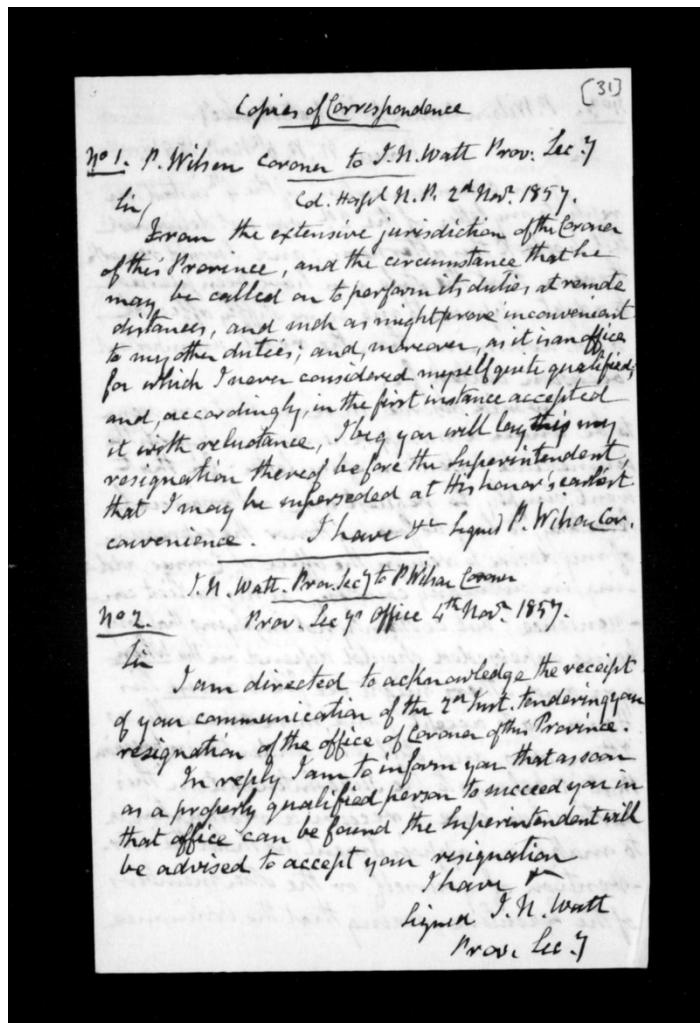 [31]
Copies of Correspondence
No 1. P. Wilson Coroner to I. N. Watt Prov. Sec.y
Sir/ Col. Hospl N. P. 2nd Novr. 1857.
From the extensive jurisdiction of the Coroner
of this Province, and the circumstance that he
may be called on to perform its duties at remote
distances, and such as might prove inconvenient
to my other duties; and, moreover, as it is an office
for which I never considered myself quite qualified,
and, accordingly, in the first instance accepted
it with reluctance, I beg you will lay this my
resignation thereof before the Superintendent,
that I may be superseded at His honor's earliest
convenience. I have &c Signed P. Wilson Cor.
I. N. Watt. Prov. Sec y to P Wilson Coroner
No 2. Prov. Sec ys Office 4th Novr. 1857.
Sir
I am directed to acknowledge the receipt
of your communication of the 2nd Inst. tendering your
resignation of the office of Coroner of this Province.
In reply I am to inform you that as soon
as a properly qualified person to succeed you in
that office can be found the Superintendent will
be advised to accept your resignation
I have &c
Signed I. N. Watt
Prov. Sec.y